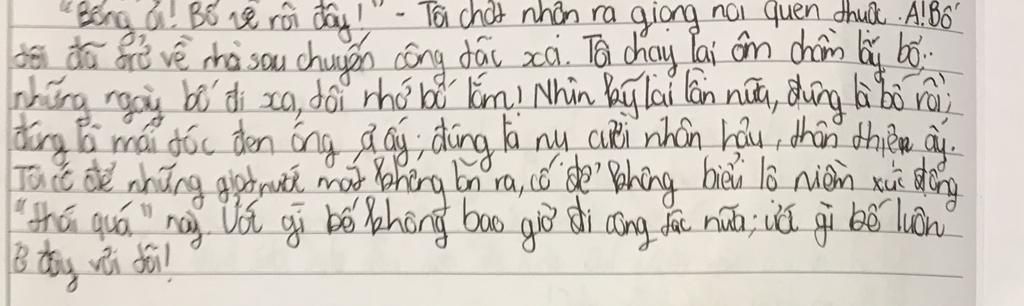 "Bống ơi! Bố về rồi đây!" - Tôi chợt nhận ra giọng nói quen thuộc. A! Bố
tôi đã trở về nhà sau chuyến công tác xa. Tôi chạy lại ôm chầm lấy bố..
những ngày bố đi xa, tôi nhớ bố lắm! Nhìn kỹ lại lần nữa, đúng là bố rồi;
đúng là mái tóc đen óng ả ấy; đúng là nụ cười nhân hậu, thân thiện ấy.
Tôi cố để những giọt nước mắt không ùn ra, cố để không biểu lộ niềm xúc động
"thái quá" này. Ước gì bố không bao giờ đi công tác nữa; ước gì bố luôn
ở đây với tôi!